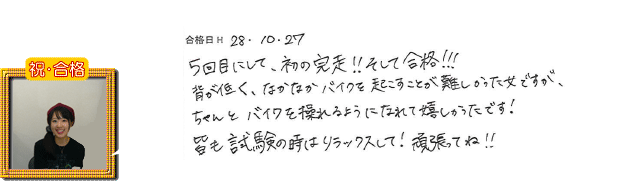 祝・合格
合格日 H 28・10・27
5回目にして、初の完走!!そして合格!!!
背が低く、なかなかバイクを起こすことが難しかった女ですが、
ちゃんとバイクを操れるようになれて嬉しかったです!
皆も試験の時はリラックスして!頑張ってね!!